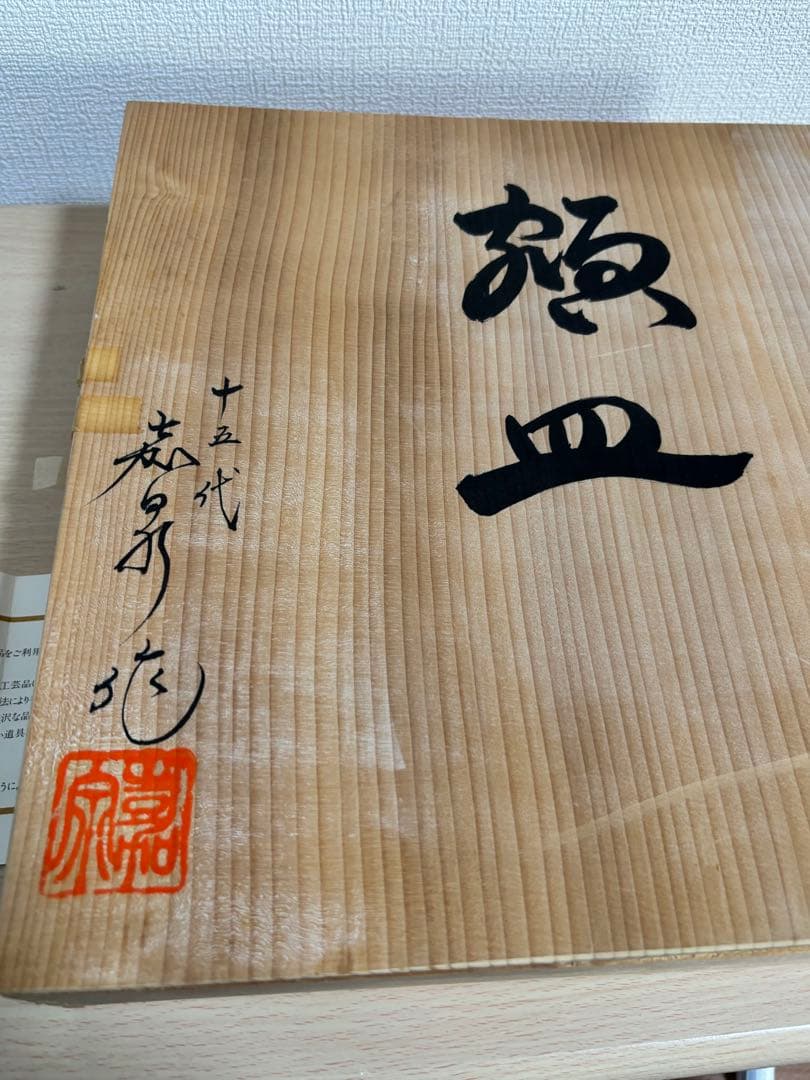 額皿
十五代
嘉泉作
嘉泉
をご利用
工芸品
法により
沢な品
い道具
うに